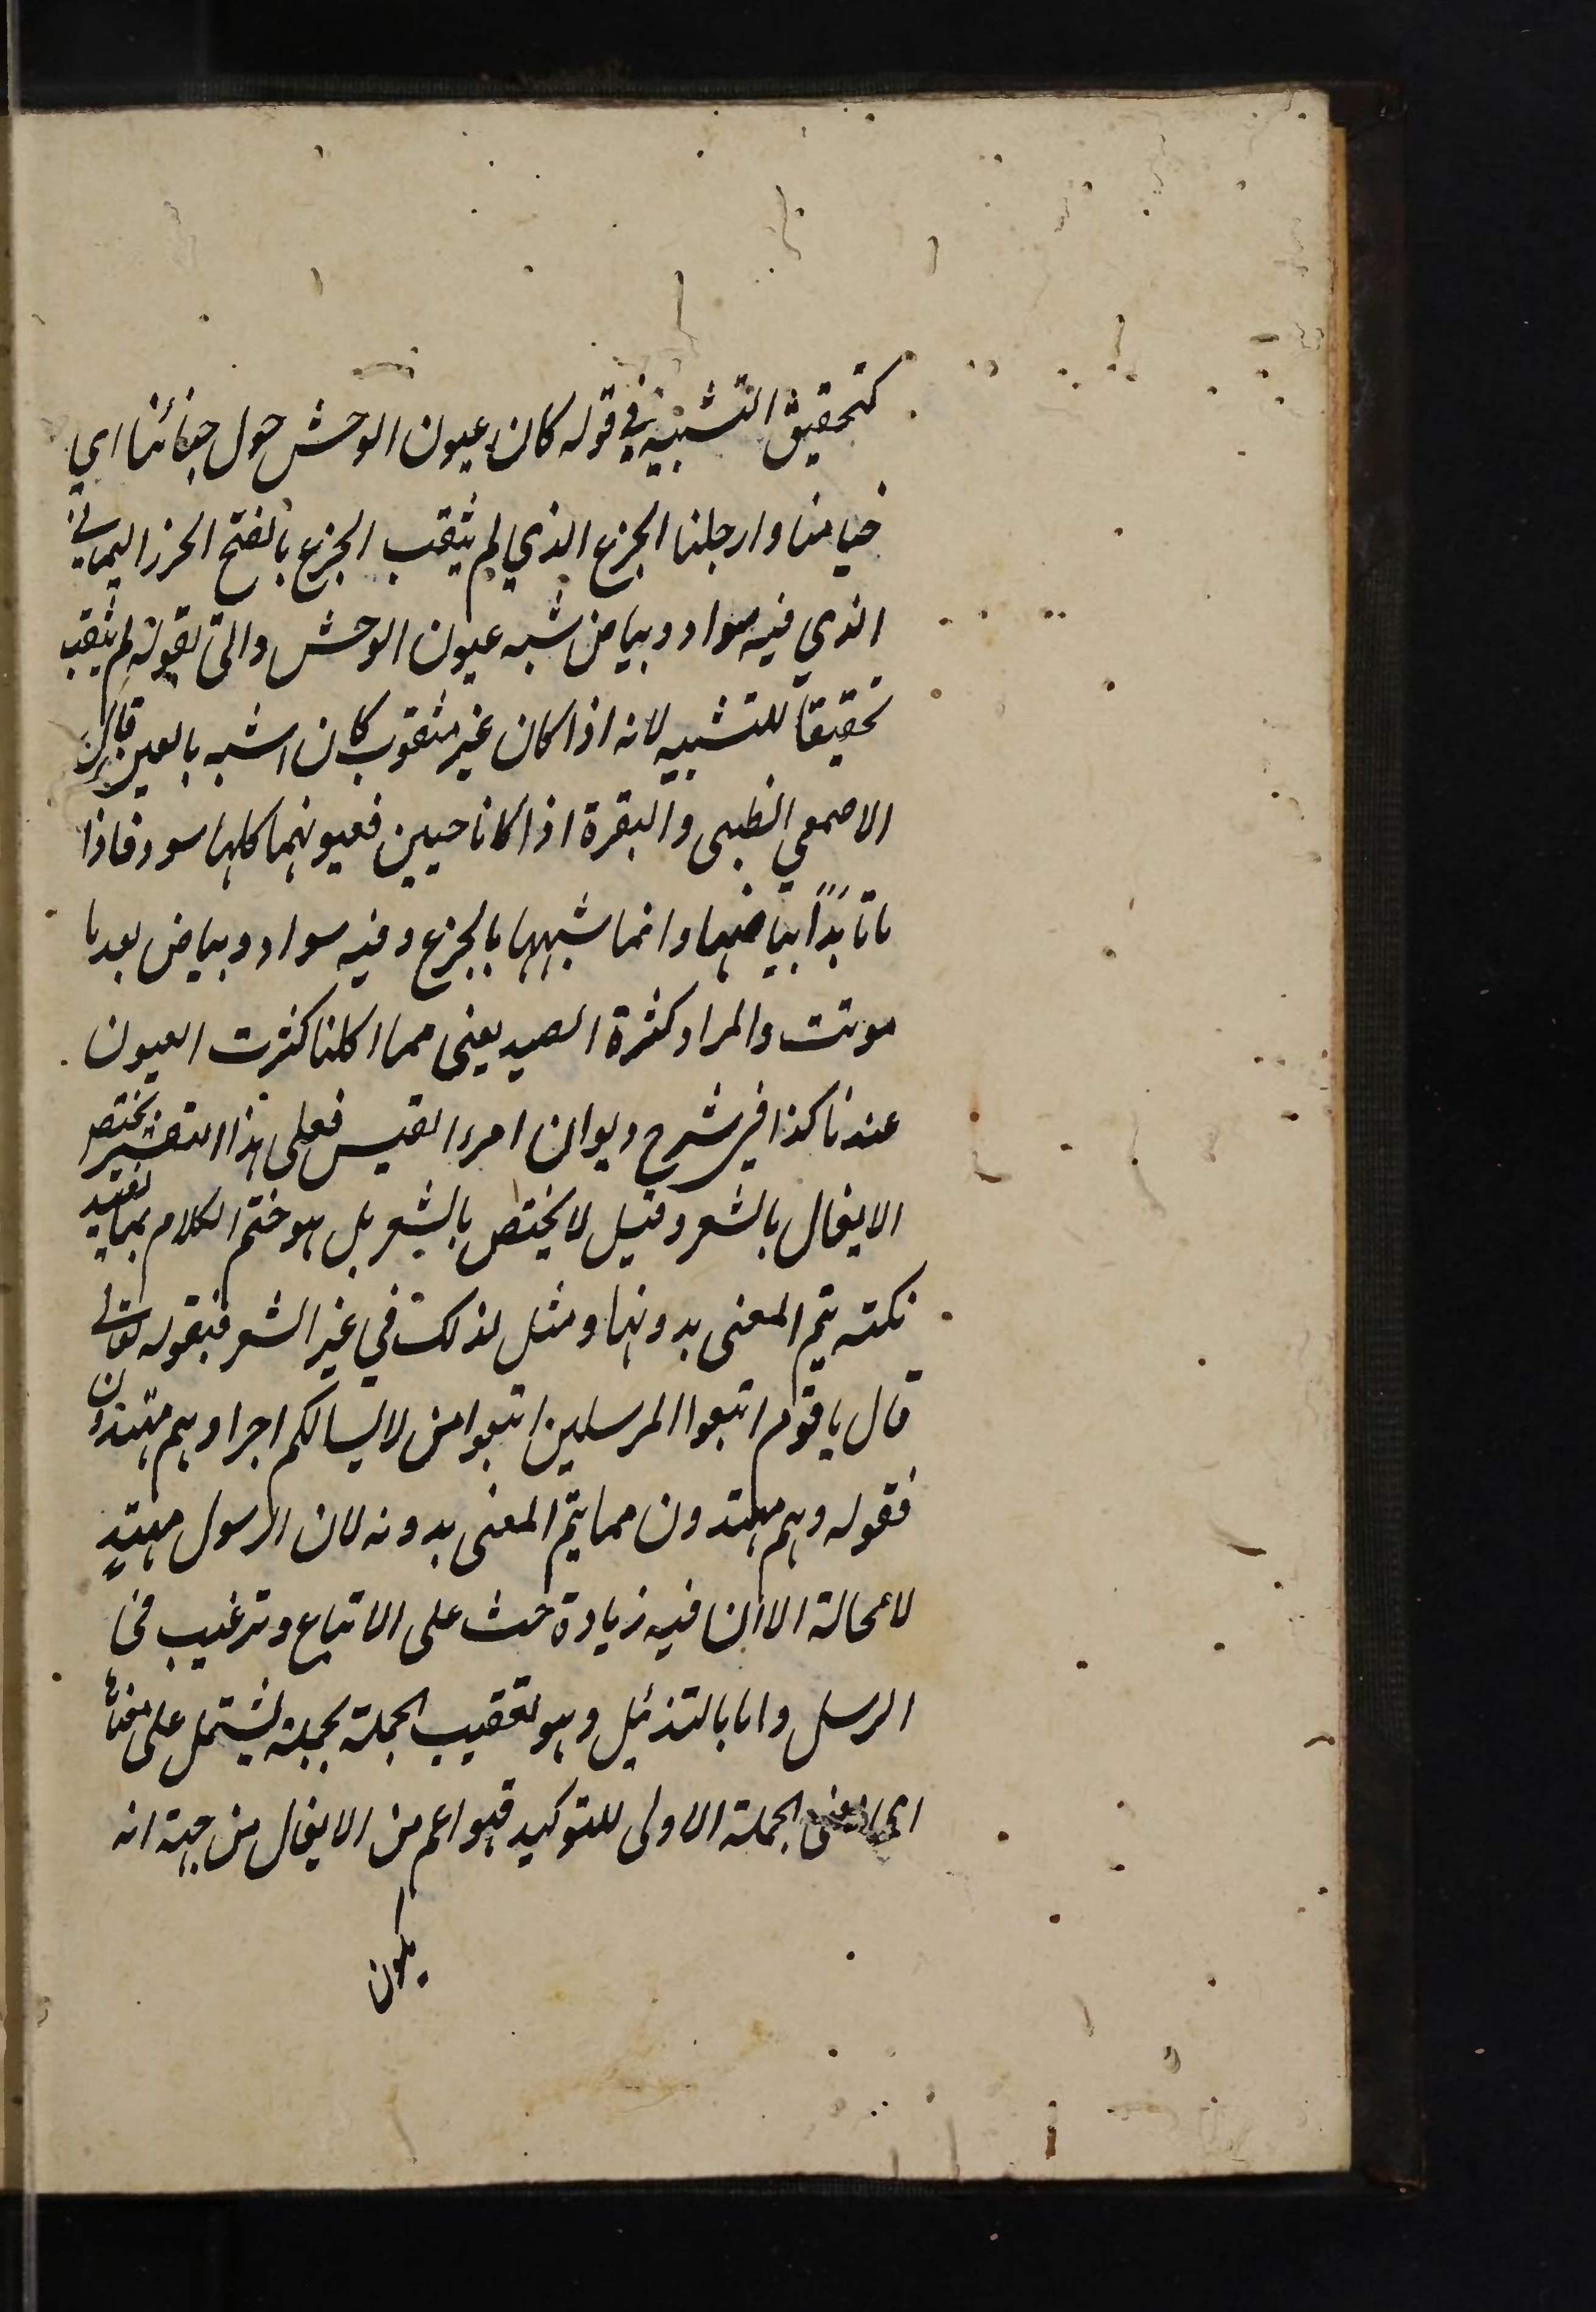 كتحقيق التشبيه في قوله كان عيون الوحش حول خبائنا اي
خيامنا وارحلنا الجزع الذي لم يثقب الجزع بالفتح الحرز اليماني
الذي فيه سواد وبياض شبه عيون الوحش واتى بقوله لم يثقب
تحقيقاً للتشبيه لانه اذا كان غير مثقوب كان اشبه بالعين قال
الاصمعي الظبى والبقرة اذا كانا حيين فعيونهما كلها سود فاذا
ماتا بدا بياضها وانما شبهها بالجزع وفيه سواد وبياض بعد ما
موتت والمراد كثرة الصيد يعنى مما اكلنا كثرت العيون
عندنا كذا في شرح ديوان امرء القيس فعلى هذا التفسير يختص
الايغال بالشعر وقيل لا يختص بالشعر بل هو ختم الكلام بما يفيد
نكتة يتم المعنى بدونها ومثل لذلك في غير الشعر فبقوله تعالى
قال يا قوم اتبعوا المرسلين اتبعوا من لا يسالكم اجرا وهم مهتدون
فقوله وهم مهتدون مما يتم المعنى بدونه لان الرسول مهتدٍ
لا محالة الا ان فيه زيادة حث على الاتباع وترغيب فى
الرسل واما بالتذئيل وهو تعقيب الجملة بجملة يشتمل على معناها
اى معنى الجملة الاولى للتوكيد فهو اعم من الايغال من جهة انه
يكون